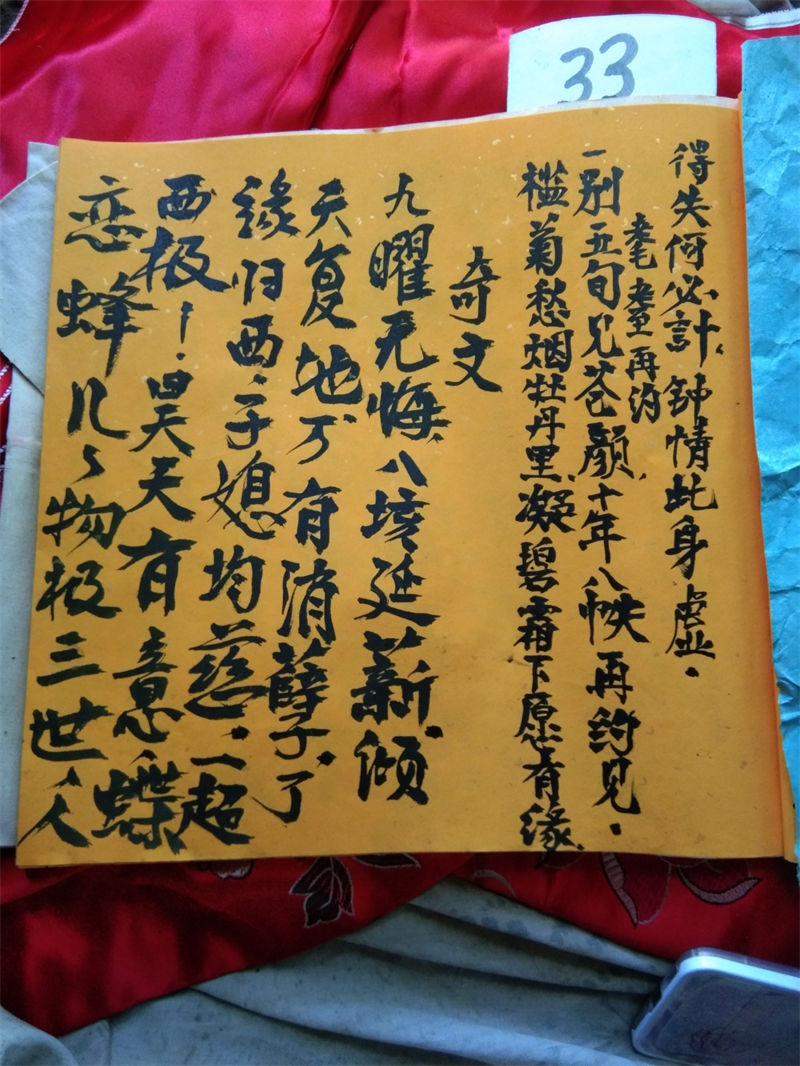 33
得失何必計、钟情此身虚.
耄耋再约
一别五旬见苍颜、十年八帙再约见.
槛菊愁烟牡丹里、凝碧霜下愿有缘、
奇文
九曜无悔、八垓延薪、倾
天复地、万有消孽、了
缘归西.子媳均慈.一超
西极.昊天有意、蝶
恋蜂儿、物极三世、人